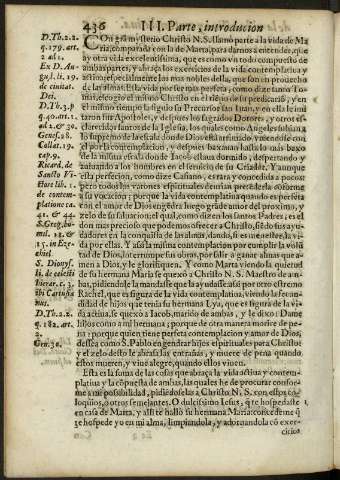 436
III. Parte, introducion
D.Th.2.2.
q.179. art.
2. ad 2.
Ex D. Au-
gus. li. 19.
de ciuitat.
Dei.
D.Th.3.p
q.40. art. 1.
ad 2. & 3.
Genes. 28.
Collat. 19.
cap. 9.
Ricard. de
Sancto Vi-
ctore lib. 1.
de contem-
platione ca.
41. & 44.
S. Greg. ho-
mil. 
15. in Eze-
chiel
S. Dionys.
li. de celesti
hierar. c. 3.
ibi Cartusia
nus.
D.Th.2.2.
q. 182. art.
2.
Gen. 30.
CON gran mysterio Christo N.S. llamò parte a la vida de Ma
ria, comparada con la de Marta, para darnos a entender, que
ay otra vida excelentissima, que es como vn todo compuesto de
ambas partes, y abraça los exercicios de la vida contemplatiua y
actiua, especialmente los mas nobles della, que son en prouecho
de las almas. Esta vida por ser mas perfeta, como dize santo To-
mas, escogio el mismo Christo en el tiẽpo de su predicaciõ, y en
el mismo tiempo la siguio su Precursor san Iuan, y en ella le imi
taron sus Apostoles, y despues los sagrados Dotores, y otros es-
clarecidos santos de la Iglesia: los quales como Angeles subian a
lo supremo de la escala de donde Dios estaua arrimado, vniendose con
el por la contemplacion, y despues baxauan hasta lo mas baxo
de la misma escala donde Iacob estaua dormido, despertando y
ayudando a los hombres en el seruicio de su Criador. Y aunque
esta perfecion, como dize Casiano, es rara y concedida a pocos:
pero todos los varones espirituales deurian procurarla conforme
a su vocacion; porque la vida contemplatiua quando es perfeta
con el amor de Dios engendra luego grãde amor del proximo, y
zelo de su saluacion; el qual, como dizen los santos Padres, es el
don mas precioso que podemos ofrecer a Christo, siẽdo sus ayu-
dadores en la conquista de las almas, dando, si es menester, la vi-
da por ellas. Y assi la misma contemplacion por cumplir la volũ-
tad de Dios, interrumpe su obras, por salir a ganar almas que a-
men a Dios, y le glorifiquen. Y como Marta viendo la quietud
de su hermana Maria se quexò a Christo N. S. Maestro de am-
bas, pidiendole la mandasse que la ayudasse: assi por otro estremo
Rachel, que es figura de la vida contemplatiua, viendo la fecun-
didad de hijos que tenia su hermana Lya, que es figura de la vi-
da actiua, se quexò a Iacob, marido de ambas, y le dixo: Dame
hijos como a mi hermana; porque de otra manera morire de pe-
na: porque quien tiene perfeta contemplacion y amor de Dios,
dessea como S. Pablo engendrar hijos espirituales para Christo:
y el zelo desto le abrasa las entrañas, y muere de pena quando
estos mueren, y viue alegre, quando ellos viuen.
Esta es la suma de las cosas que abraça la vida actiua y contem-
platiua, y la cõpuesta de ambas, las quales he de procurar confor-
me a mi possibilidad, pidiendoselas a Christo N. S. con estos co-
loquios, o otros semejantes. O dulcissimo Iesus, que te hospedaste
en casa de Marta, y alli te hallò su hermana Maria: concedeme q̃
te hospede yo en mi alma, limpiandola, y adornandola cõ exer-
cicios